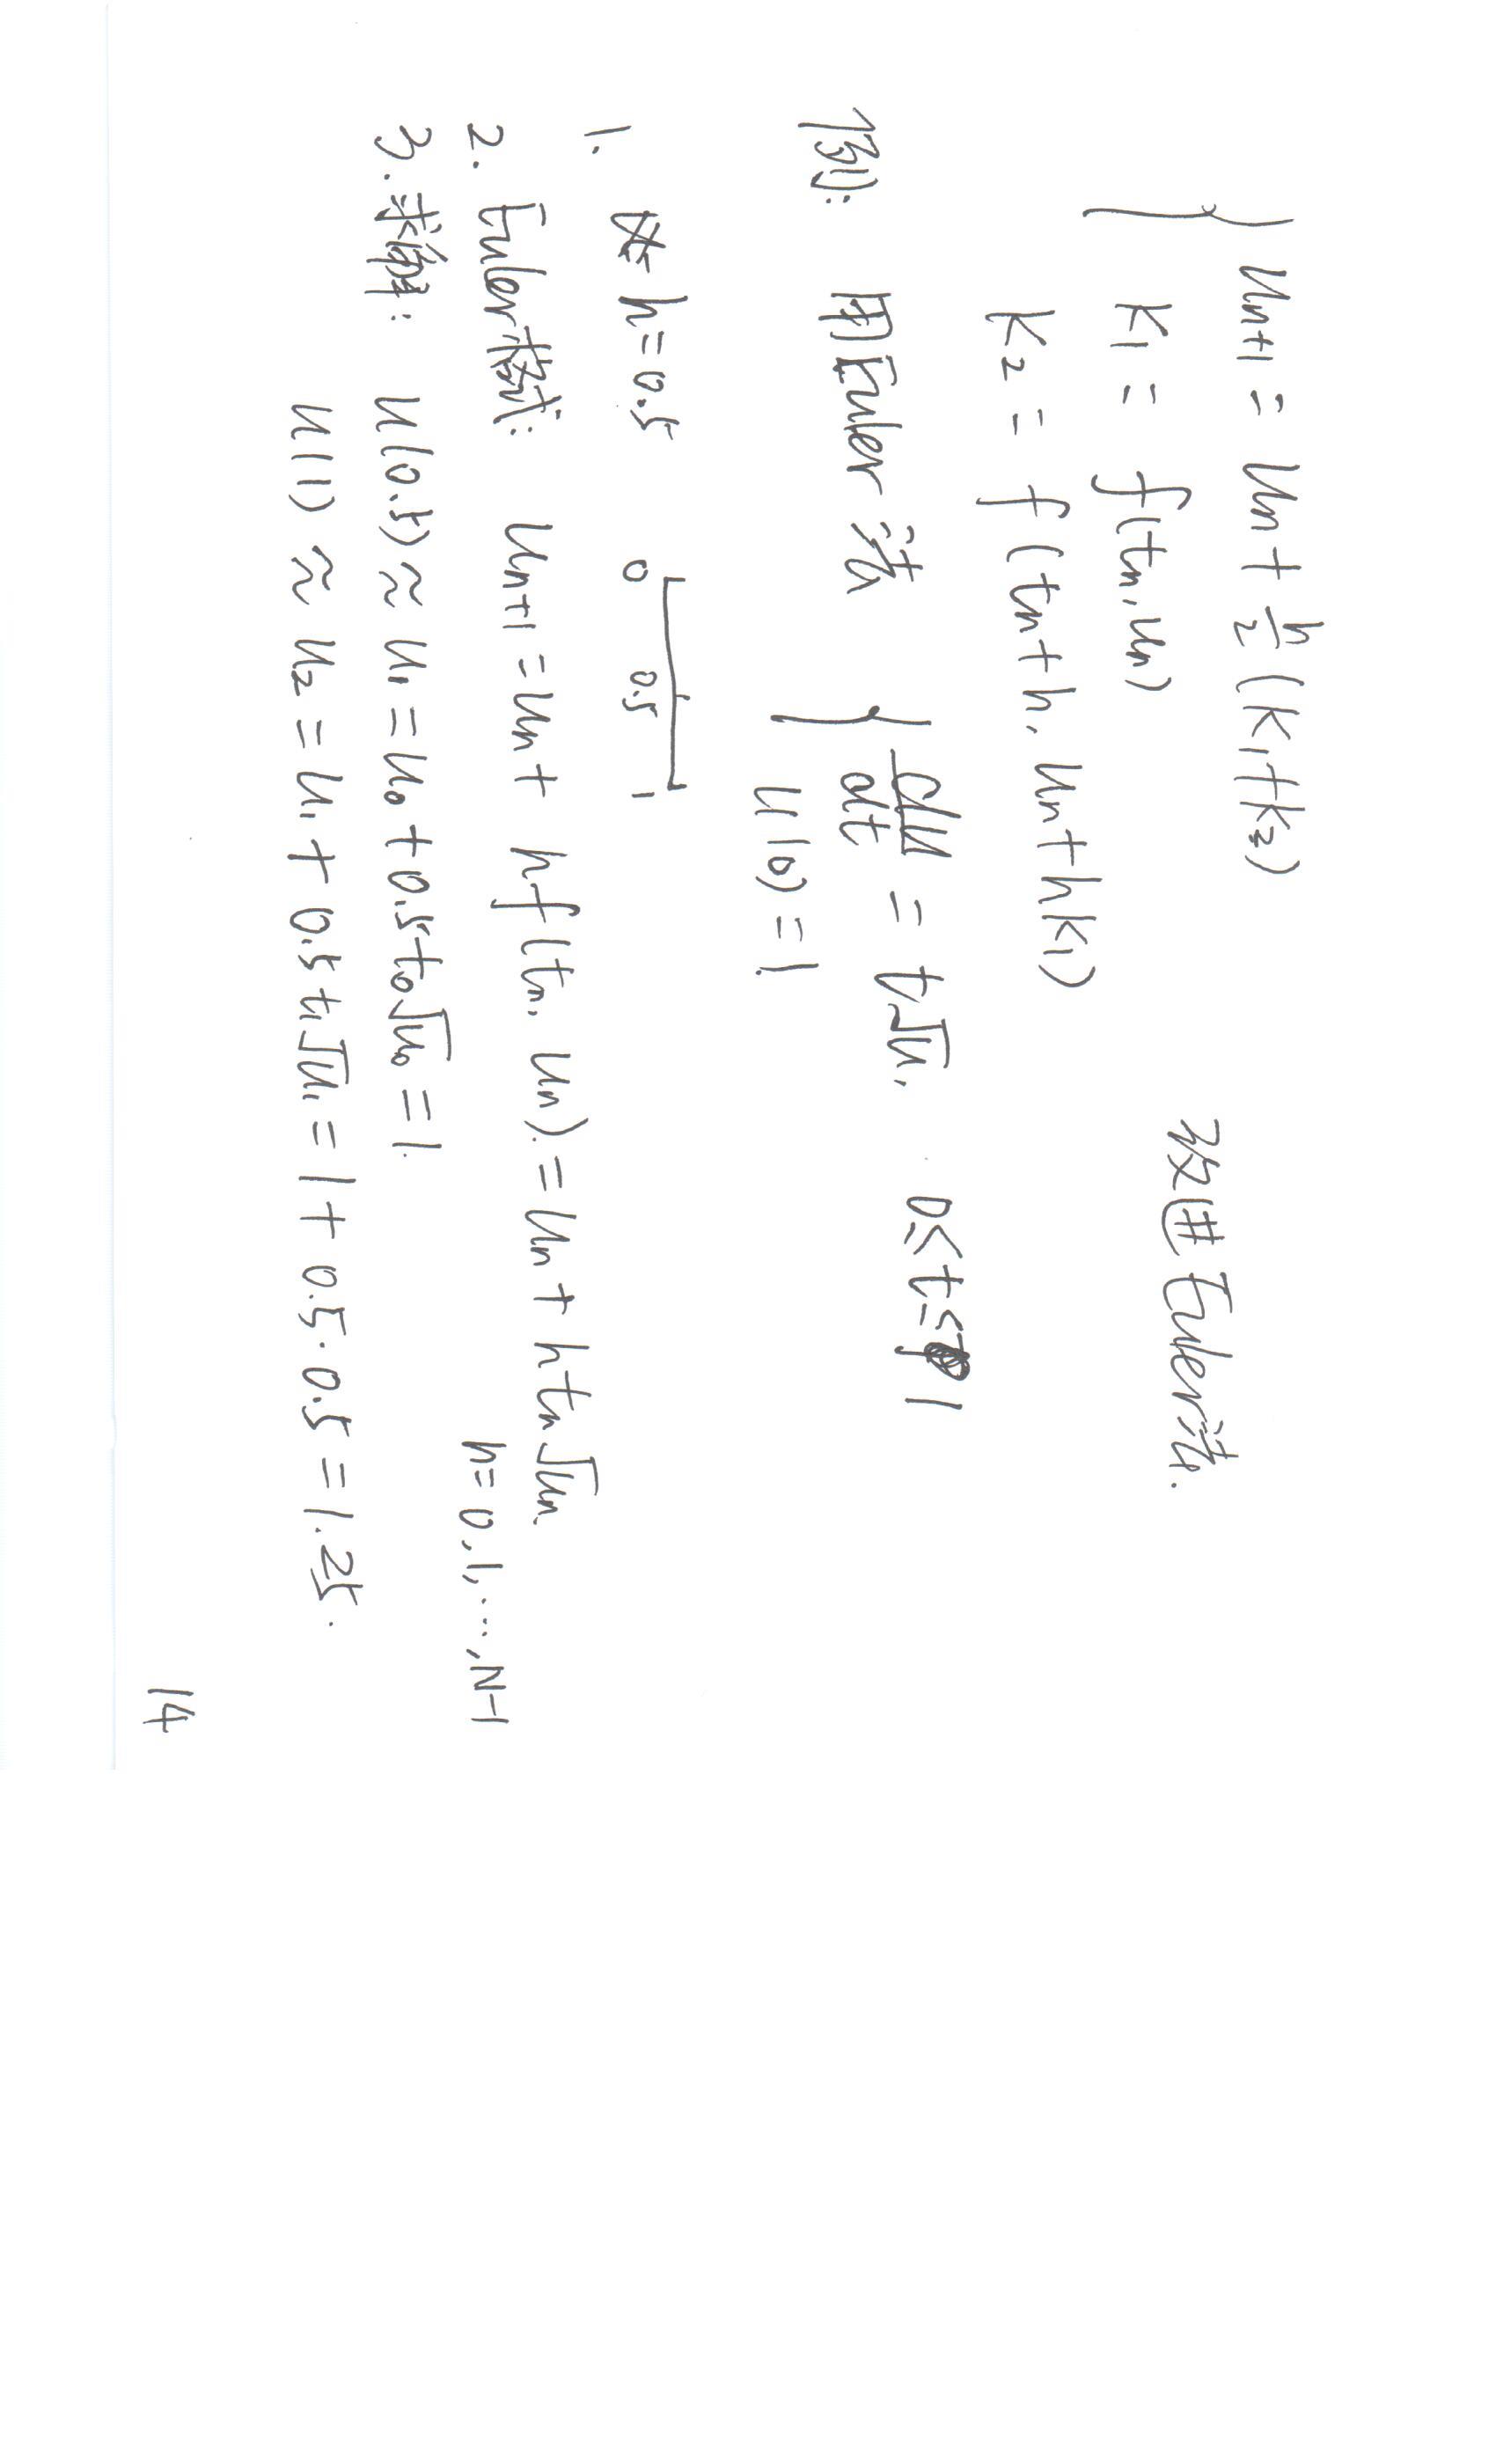 Un+1 = Un + h/2 (K1+K2)
改进Euler法.
K1 = f(tn, un)
K2 = f(tn+h, Un+hK1)
例: 用Euler法 { du/dt = t√u, 0≤t≤1
u(0)=1.
1. h=0.5
0 0.5 1
2. Euler格式: Un+1 = Un + hf(tn, un). = Un + htn√un.
n=0,1,…,N-1
3. 求解: u(0.5) ≈ u1 = u0 + 0.5t0√u0 = 1.
u(1) ≈ u2 = u1 + 0.5t1√u1 = 1 + 0.5·0.5 = 1.25.
14